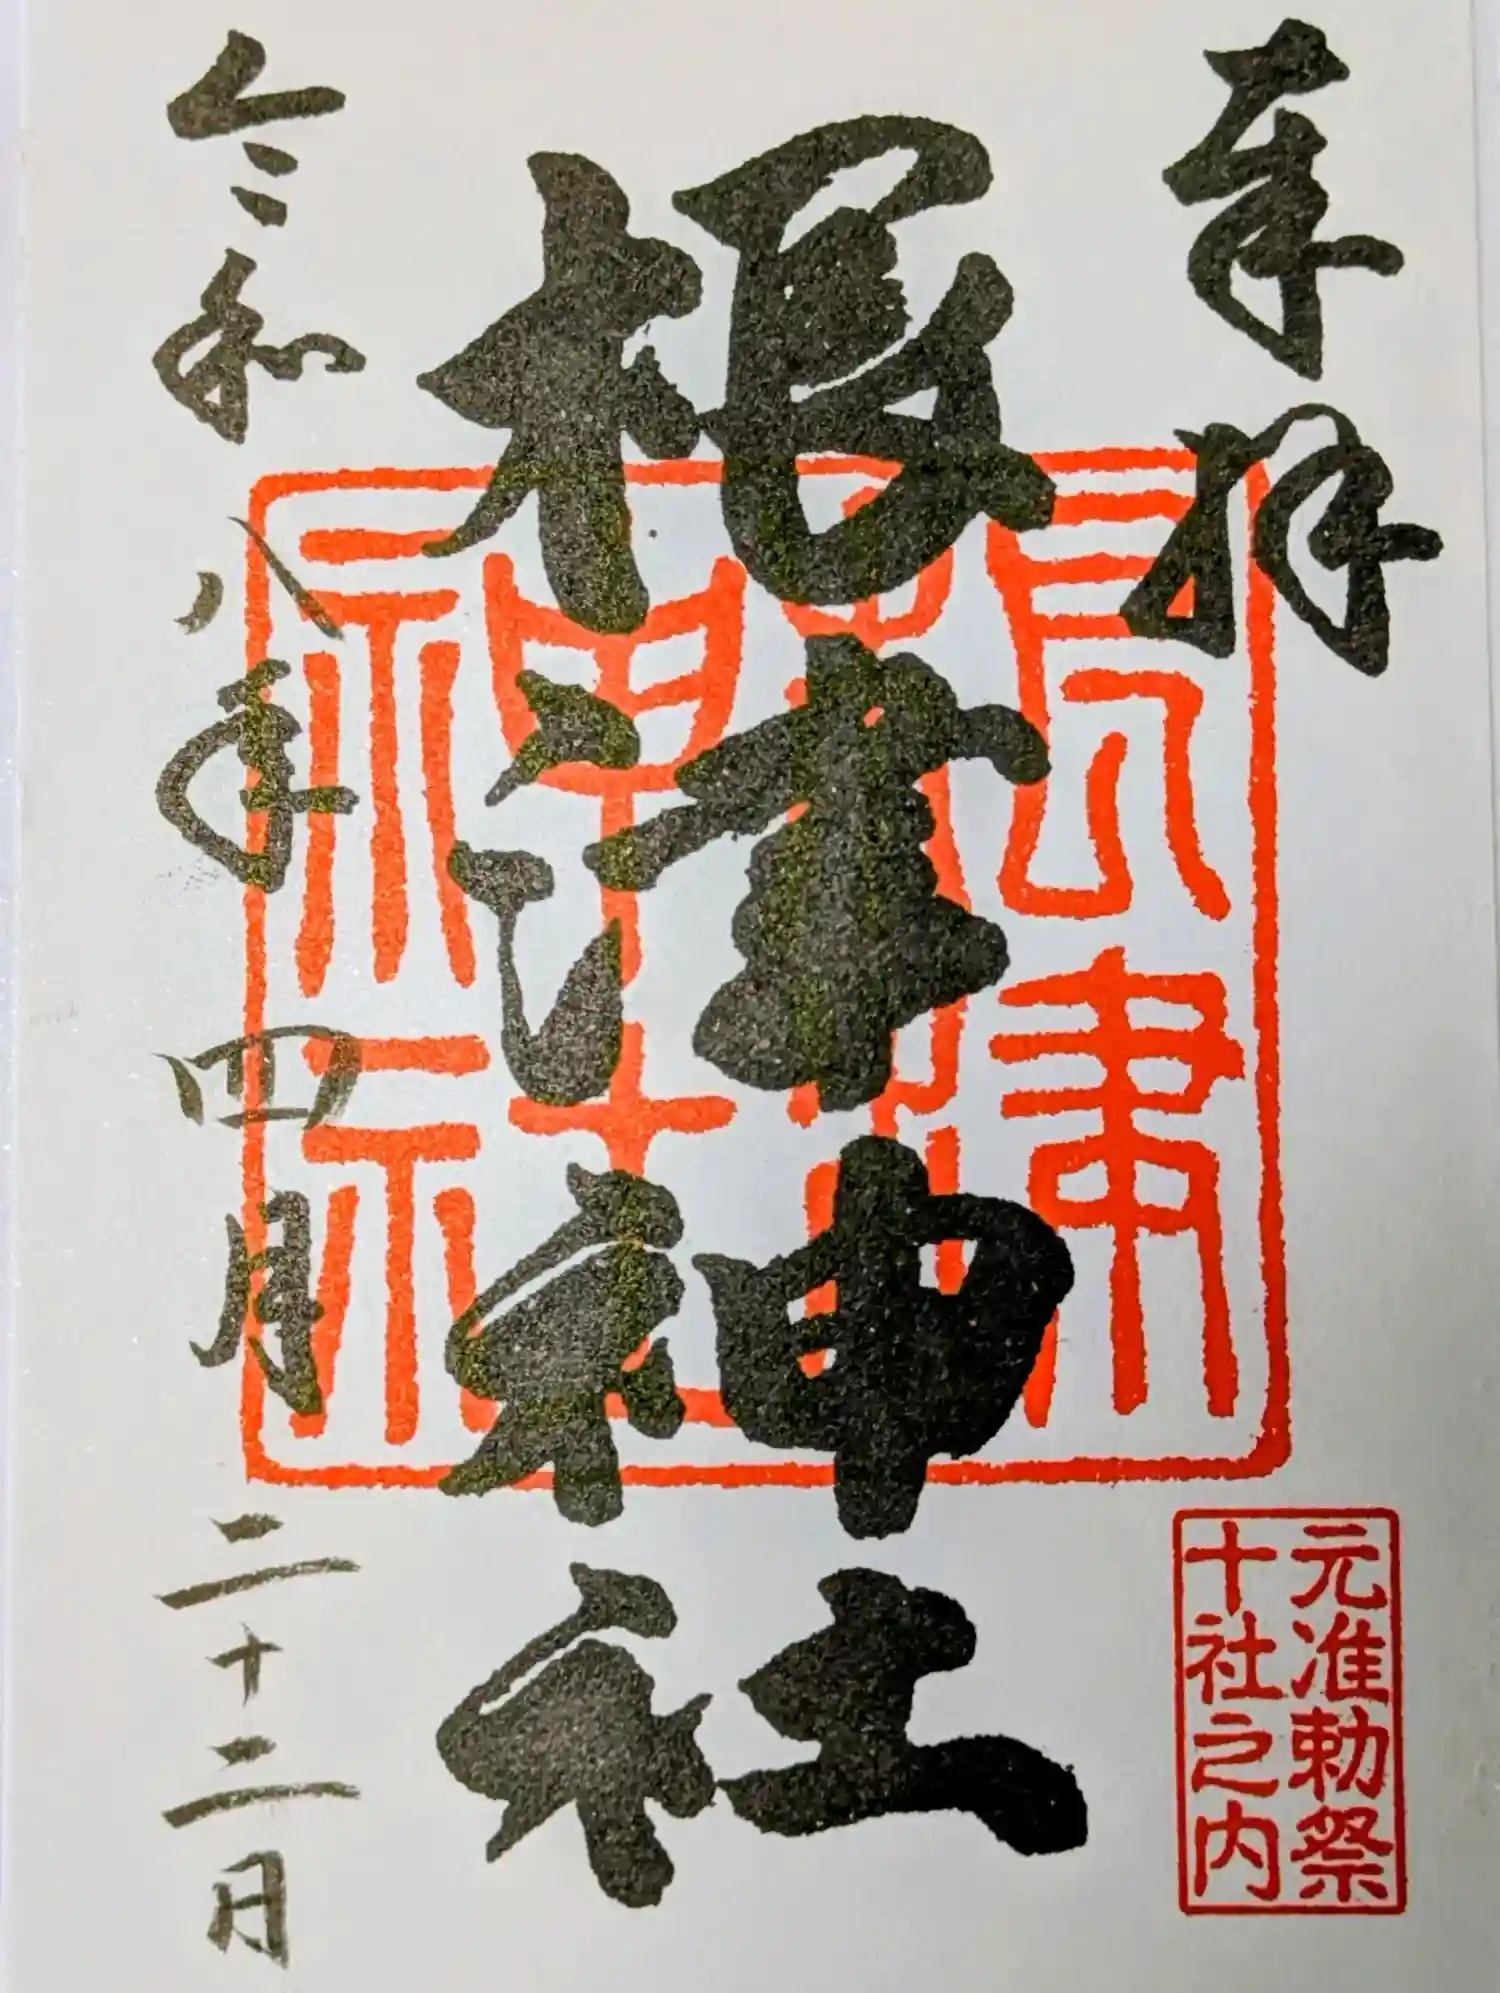 奉拝
元准勅祭
十社之内
根津神社
令和八年四月二十二日